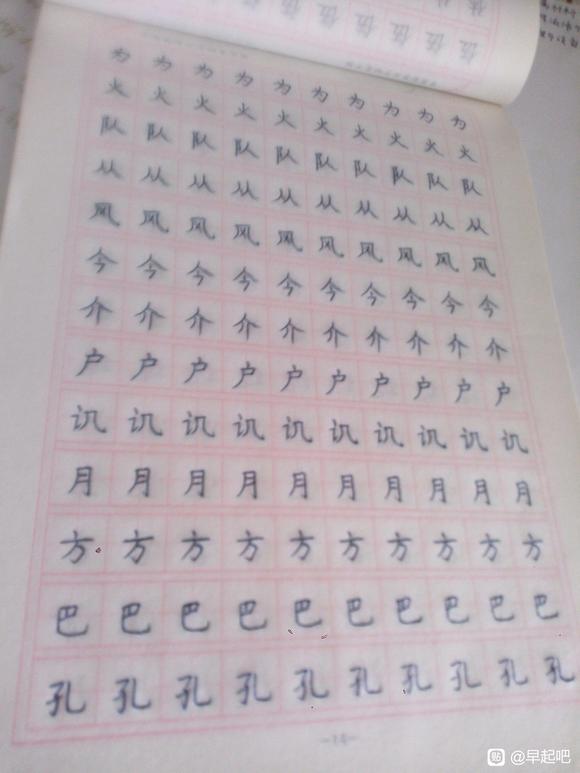 伍 伍 伍 伍 伍
为 为 为 为 为 为 为 为 为
火 火 火 火 火 火 火 火 火
队 队 队 队 队 队 队 队 队
从 从 从 从 从 从 从 从 从
风 风 风 风 风 风 风 风 风
今 今 今 今 今 今 今 今 今
介 介 介 介 介 介 介 介 介
户 户 户 户 户 户 户 户 户
讥 讥 讥 讥 讥 讥 讥 讥 讥
月 月 月 月 月 月 月 月 月
方 方 方 方 方 方 方 方 方
巴 巴 巴 巴 巴 巴 巴 巴 巴
孔 孔 孔 孔 孔 孔 孔 孔 孔
—14—
贴 @早起吧